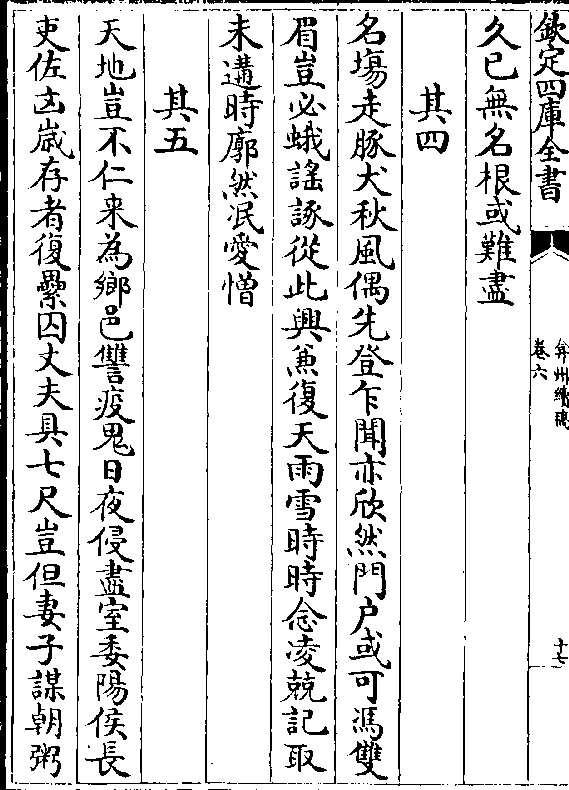 欽定四庫全書
弇州續稿
卷六
十七
久已無名根或難盡
其四
名場走豚犬秋風偶先登乍聞亦欣然門户或可馮雙
眉豈必蛾謡諑從此興兼復天雨雪時時念凌兢記取
未遘時廓然泯愛憎
其五
天地豈不仁来為鄉邑讐疫鬼日夜侵盡室委陽侯長
吏佐凶歲存者復纍囚丈夫具七尺豈但妻子謀朝粥